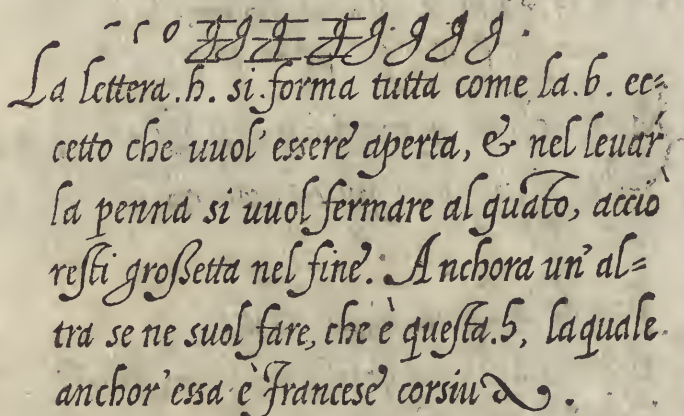 - r o g g g g g g g g.
La lettera.h. si forma tutta come la.b. ec=
cetto che uuol' essere aperta, & nel leuar
la penna si uuol fermare al quãto, acciò
resti großetta nel fine. Anchora un' al=
tra se ne suol fare, che è questa.h, laquale
anchor' essa è Francese corsiua.